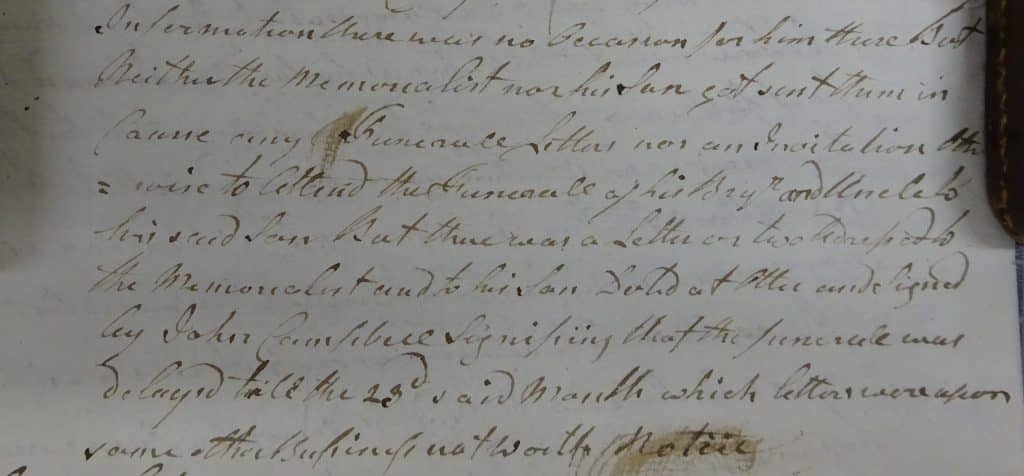 Information there was no Occasion for him there But
Neither the Memorialist nor his Son got sent them in
Cause any Funerale Letters nor an Invitation Othr
= wise to Attend the Funerale of his Broyr and Uncle to
his said Son But there was a Letter or two Adressed to
the Memorialist and to his Son Dated at Otter and Signed
by John Campbell Signifiing that the funerale was
delayd till the 23d said Month which letters were upon
some other Business not worth Notice